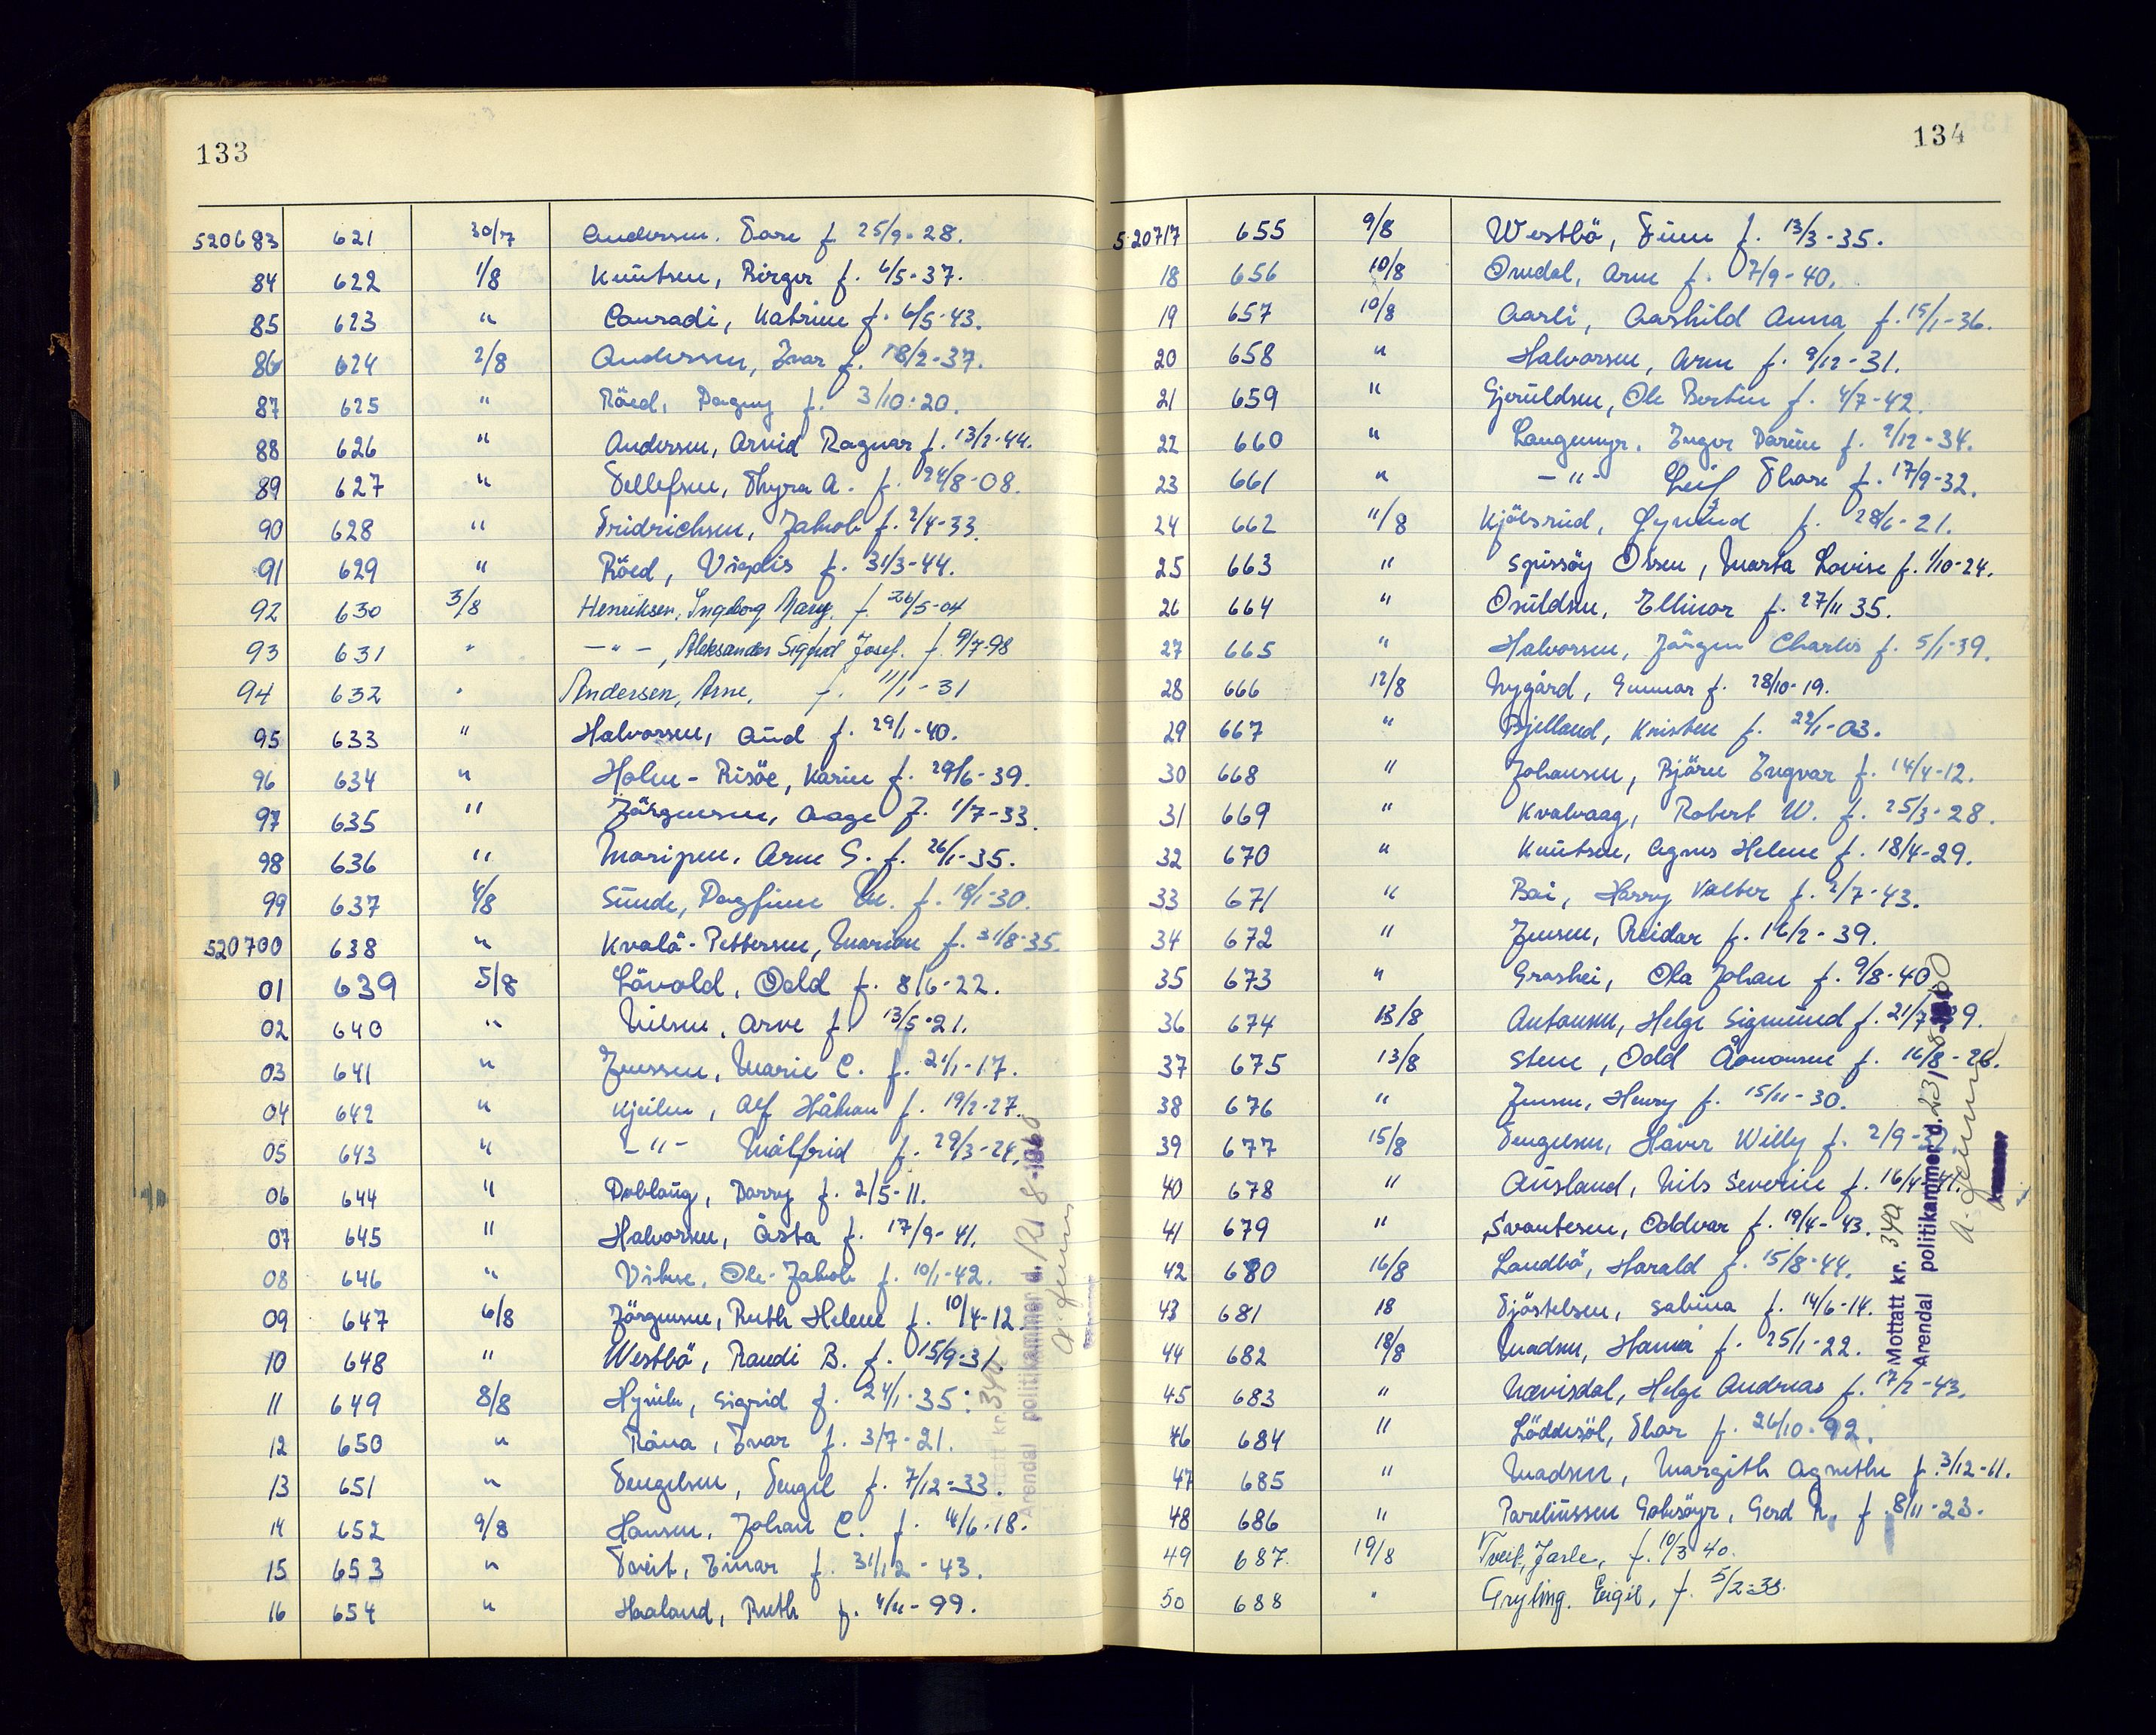 133
520683 621 30/7 Andersen. Tore f 25/9-28.
84 622 1/8 Knutsen, Birger f. 6/5-37.
85 623 " Conradi, Katrine f. 6/5-43.
86 624 2/8 Andersen, Ivar f. 18/2-37.
87 625 " Röed, Dagny f. 3/10-20.
88 626 " Andersen, Arvid Ragnar f. 13/2-44.
89 627 " Tellefsen, Thyra A. f. 24/8-08.
90 628 " Fridrichsen, Jakob f. 2/4-33.
91 629 " Röed, Vigdis f. 31/3-44.
92 630 3/8 Henriksen, Ingeborg Mary. f. 26/5-04
93 631 " -"-, Aleksander Sigfrid Josef. f. 9/7-98
94 632 " Andersen, Arne. f. 11/1-31
95 633 " Halvorsen, Aud f. 29/1-40.
96 634 " Holm-Risöe, Karin f. 29/6-39.
97 635 " Jörgensen, Aage J. 1/7-33.
98 636 " Moripen, Arne S. f. 26/1-35.
99 637 4/8 Sunde, Dagfinn M. f. 18/1-30.
520700 638 " Kvalö-Pettersen, Marion f. 31/8-35.
01 639 5/8 Lövold, Odd f. 8/6-22.
02 640 " Nilsen, Arve f. 13/5-21.
03 641 " Jenssen, Marie C. f. 21/1-17.
04 642 " Kjeilen, Alf Håkon f. 19/2-27.
05 643 " -"- Målfrid f. 29/3-24.
06 644 " Doblaug, Borry f. 2/5-11.
07 645 " Halvorsen, Åsta f. 17/9-41.
08 646 " Vibere, Ole-Jakob f. 10/1-42.
09 647 6/8 Jörgensen, Ruth Helene f. 10/4-12.
10 648 " Westbö, Randi B. f. 15/9-31.
11 649 8/8 Sigrid f. 24/1-35.
12 650 " Råna, Ivar f. 3/7-21.
13 651 " Tengelsen, Tengel f. 7/12-33.
14 652 9/8 Hansen, Johan C. f. 4/6-18.
15 653 " Tveit, Einar f. 31/12-43.
16 654 " Haaland, Ruth f. 4/11-99.
Mottatt kr. 340
Arendal politikammer d. 12/8-1960
A. Jensen
134
520717 655 9/8 Westbö, Finn f. 13/3-35.
18 656 10/8 Omdal, Arne f. 7/9-40.
19 657 10/8 Aarli, Aashild Anna f. 15/1-36.
20 658 " Halvorsen, Arne f. 9/12-31.
21 659 " Gjeruldsen, Ole Bertin f. 4/7-42.
22 660 " Langemyr, Inger Dorine f. 2/12-34.
23 661 " -"- Leif Thore f. 17/9-32.
24 662 11/8 Kjölsrud, Öymund f. 28/6-21.
25 663 " Spissöy Olsen, Marta Lovise f. 1/10-24.
26 664 " Osuldsen, Ellinor f. 27/11 35.
27 665 " Halvorsen, Jörgen Charles f. 5/1-39.
28 666 12/8 Nygård, Gunnar f. 28/10-19.
29 667 " Bjelland, Kristen f. 22/1-03.
30 668 " Johansen, Björn Ingvar f. 14/4-12.
31 669 " Kvalvaag, Robert W. f. 25/3-28.
32 670 " Knutsen, Agnes Helene f. 18/4-29.
33 671 " Boi, Harry Valter f. 2/7-43.
34 672 " Jensen, Reidar f. 16/2-39.
35 673 " Grashei, Ola Johan f. 9/8-40
36 674 13/8 Antonsen, Helge Sigmund f. 21/7 9.
37 675 13/8 Stene, Odd Åomonsen f. 16/8-26.
38 676 " Jensen, Henry f. 15/11-30.
39 677 15/8 Tengelsen, Håver Willy f. 2/9-
40 678 " Ausland, Nils Severin f. 16/4-41.
41 679 " Svantesen, Oddvar f. 19/4-43.
42 680 16/8 Landbö, Harald f. 15/8-44.
43 681 18 Sjöstelsen, Sabina f. 14/6-14.
44 682 18/8 Madsen, Hanna f. 25/1-22.
45 683 " Nævisdal, Helge Andreas f. 17/2-43.
46 684 " Löddesöl, Thor f. 26/10-92.
47 685 " Madsen, Margith Agnethe f. 3/12-11.
48 686 " Pareliussen Goksöyr, Gerd R. f. 8/11-23.
49 687. 19/8 Tveit, Jarle, f. 10/3 40.
50 688 " Gryting. Eigil, f. 5/2-33.
Mottatt kr. 340
Arendal politikammer d. 23/8-60
A. Jensen